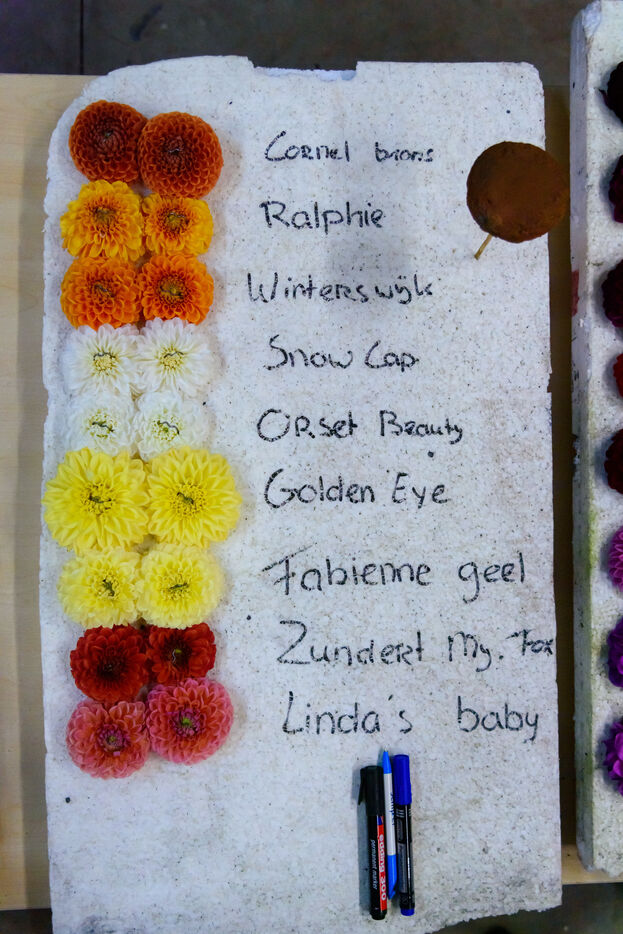 Cornel brons
Ralphie
Winterswijk
Snow Cap
Orset Beauty
Golden Eye
Fabienne geel
Zundert My. Fox
Linda's baby
edding 300
permanent marker